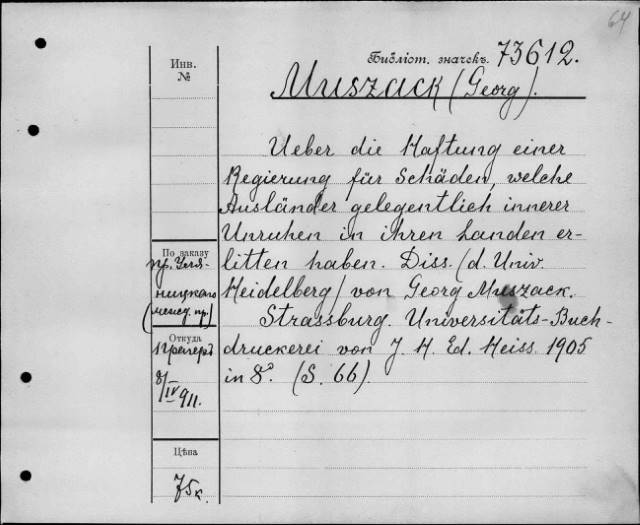 64
Инв.
№
Библіот. значекъ 73612.
Muszack (Georg).
Ueber die Haftung einer
Regierung für Schäden, welche
Ausländer gelegentlich innerer
Unruhen in ihren Landen er-
litten haben. Diss. (d. Univ.
Heidelberg) von Georg Muszack.
Strassburg. Universitäts-Buch-
druckerei von J. H. Ed. Heiss. 1905
in 8°. (S. 66).
По заказу
пр. Уля-
ницкаго
(межд. пр.)
Откуда
8/IV 911.
Цѣна
75 к.